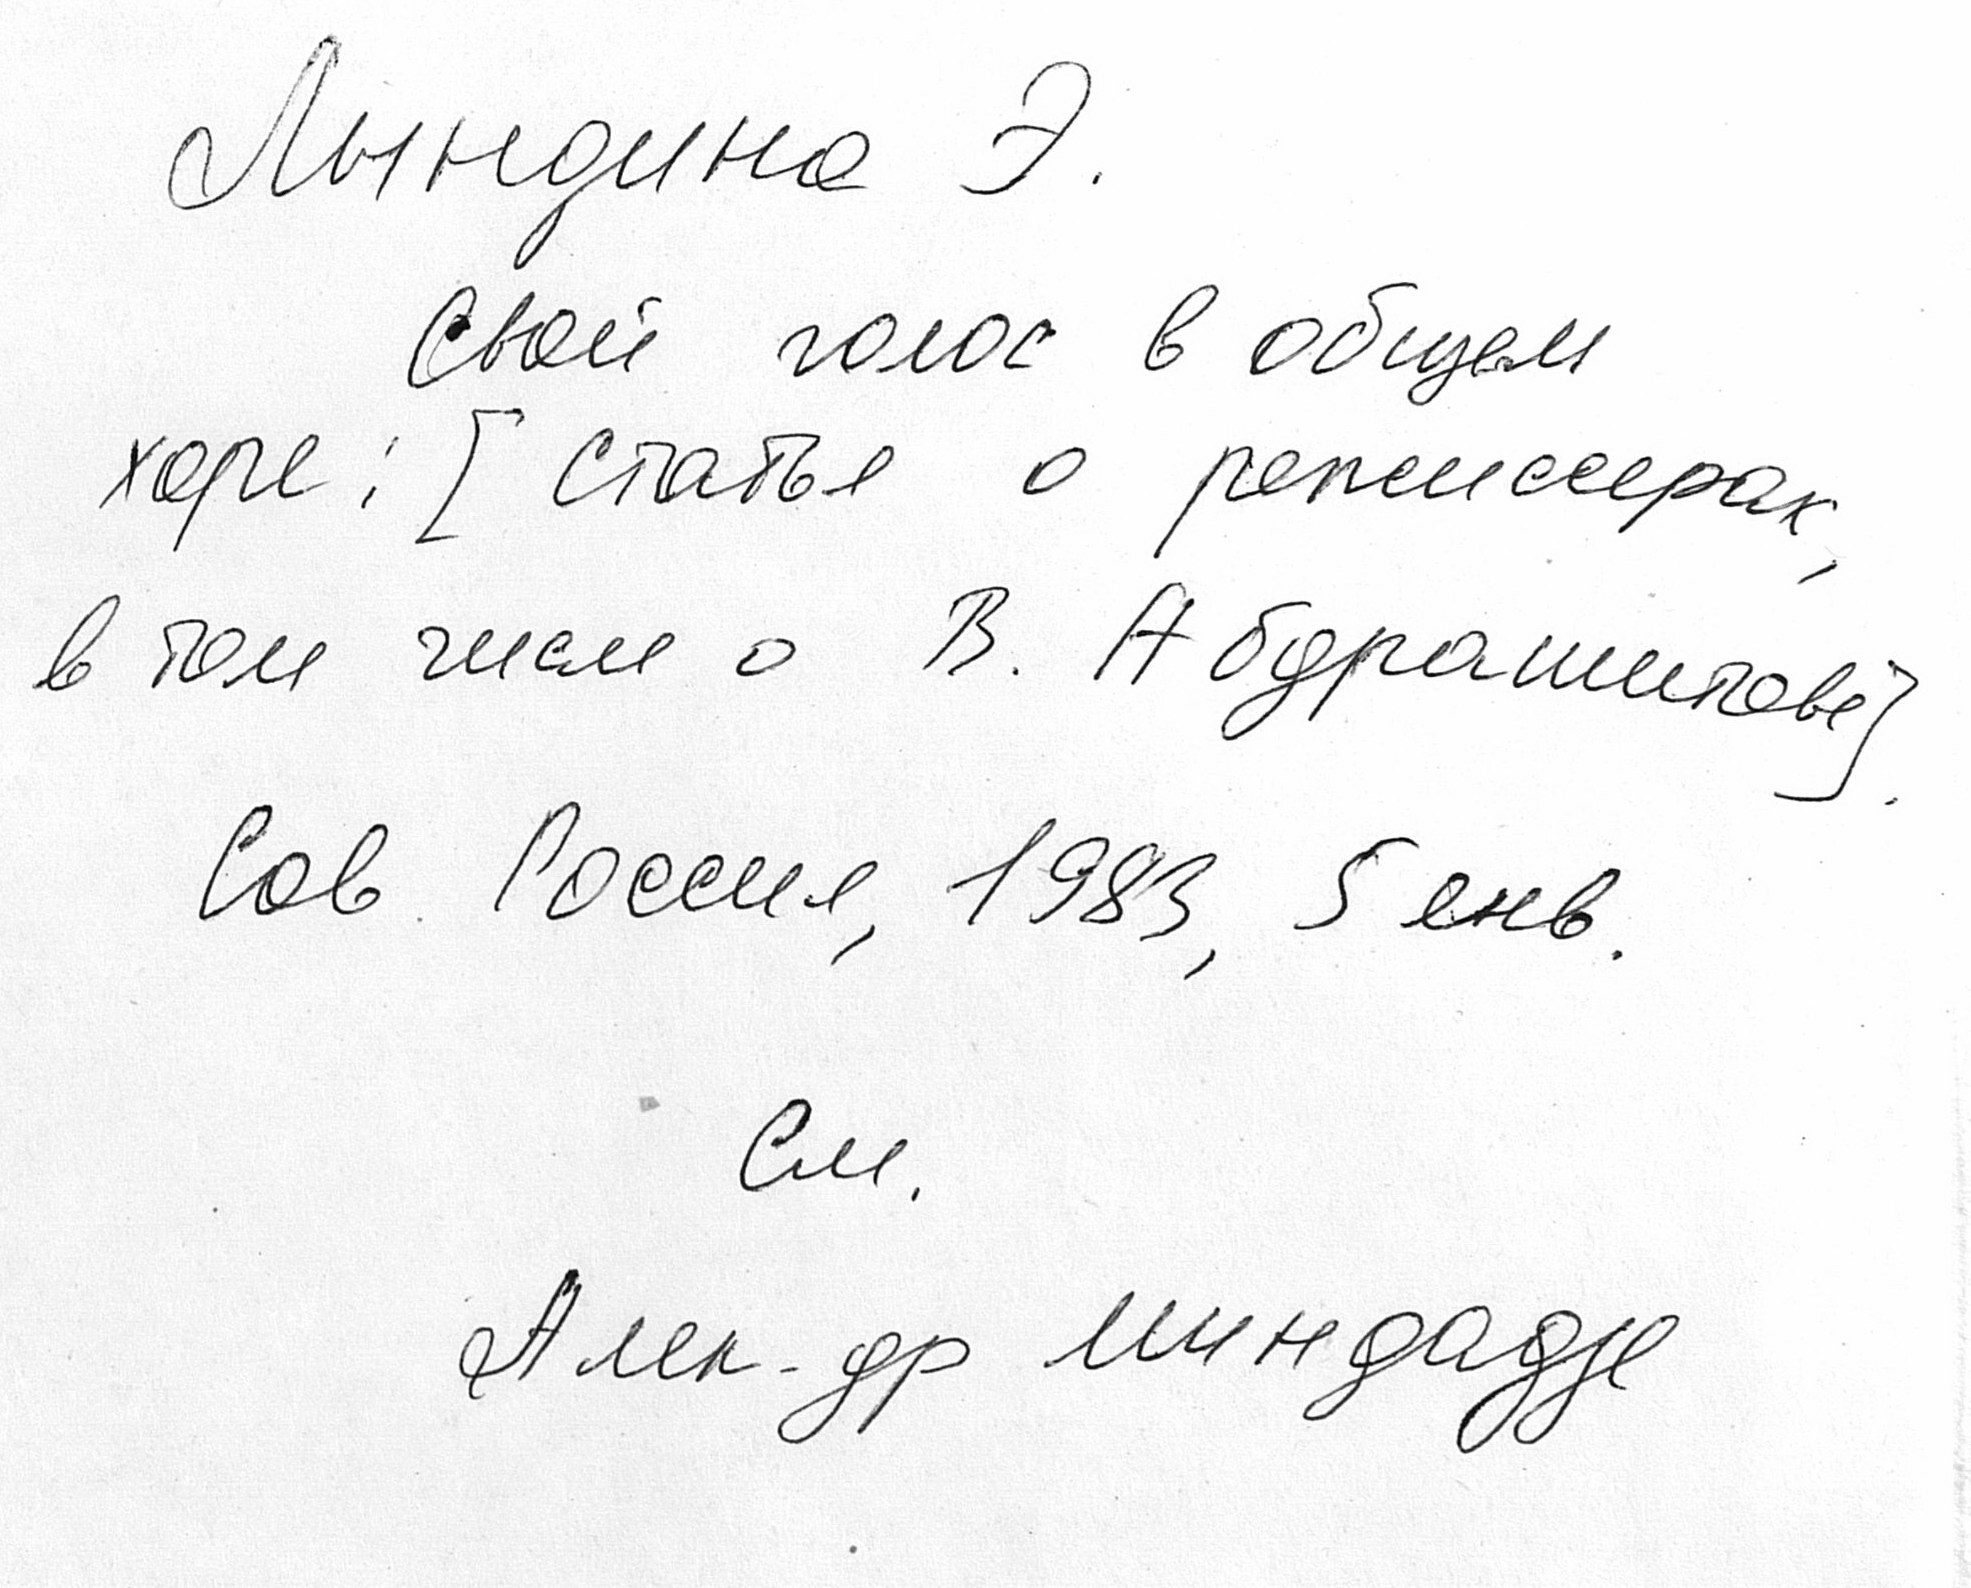 Лындина Э.
Свой голос в общем
хоре: [статья о режиссерах,
в том числе о В. Абдрашитове].
Сов. Россия, 1983, 5 янв.
См.
Алек-др Миндадзе